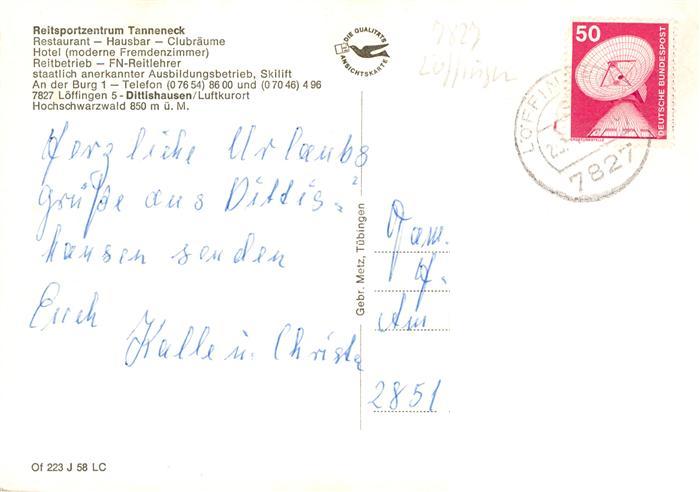 Reitsportzentrum Tanneneck
Restaurant – Hausbar – Clubräume
Hotel (moderne Fremdenzimmer)
Reitbetrieb – FN-Reitlehrer
staatlich anerkannter Ausbildungsbetrieb, Skilift
An der Burg 1 – Telefon (0 76 54) 86 00 und (0 70 46) 4 96
7827 Löffingen 5 - Dittishausen/Luftkurort
Hochschwarzwald 850 m ü. M.
DIE QUALITÄTS
ANSICHTSKARTE
7827
Löffingen
50
DEUTSCHE BUNDESPOST
LÖFFIN
7827
Herzliche Urlaubs
grüße aus Dittis-
hausen senden
Euch
Kalle u. Christa
Gebr. Metz, Tübingen
Fam.
H.
Am
2851
Of 223 J 58 LC